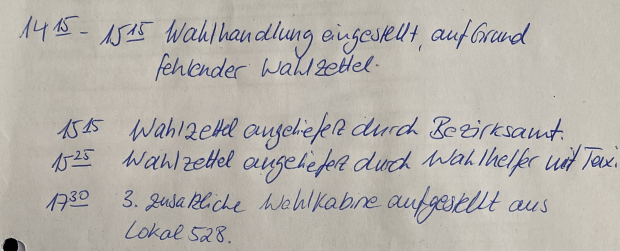 14 15 - 15 15 Wahlhandlung eingestellt, auf Grund
fehlender Wahlzettel.
15 15 Wahlzettel angeliefert durch Bezirksamt.
15 25 Wahlzettel angeliefert durch Wahlhelfer mit Taxi.
17 30 3. zusätzliche Wahlkabine aufgestellt aus
Lokal 528.